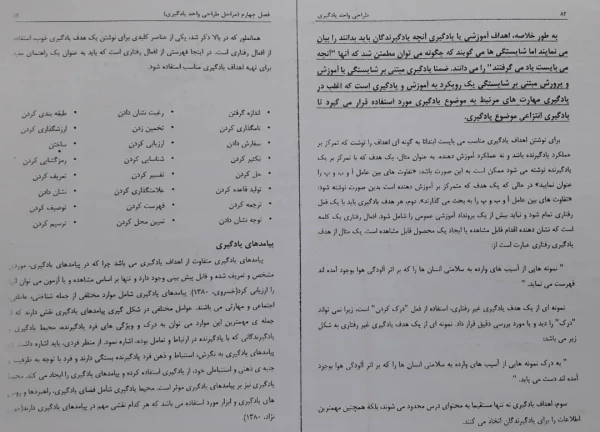 ۸۲ طراحی واحد یادگیری
به طور خلاصه، اهداف آموزشی یا یادگیری آنچه یادگیرندگان باید بدانند را بیان
می نمایند اما شایستگی ها می گویند که چگونه می توان مطمئن شد که آنها "آنچه
می بایست یاد می گرفتند" را می دانند. ضمنا یادگیری مبتنی بر شایستگی یا آموزش
و پرورش مبتنی بر شایستگی یک رویکرد به آموزش و یادگیری است که اغلب در
یادگیری مهارت های مرتبط به موضوع یادگیری مورد استفاده قرار می گیرد تا
یادگیری انتزاعی موضوع یادگیری.
برای نوشتن اهداف یادگیری مناسب می بایست ابتدائا به گونه ای اهداف را نوشت که تمرکز بر
عملکرد یادگیرنده باشد و نه عملکرد آموزش دهنده. به عنوان مثال، یک هدف که با تمرکز بر
یادگیرنده نوشته می شود ممکن است به این صورت باشد: «تفاوت های بین عامل آ و ب و پ را
عنوان نمایید» در حالی که یک هدف که متمرکز بر آموزش دهنده است بدین صورت نوشته شود:
«تفاوت های بین عامل آ و ب و پ را به بحث می گذارند». دوم، هر هدف یادگیری باید با یک فعل
رفتاری تمام شود و نباید بیش از یک برونداد آموزشی عمومی را شامل شود. افعال رفتاری یک کلمه
است که نشان دهنده اقدام قابل مشاهده یا ایجاد یک محصول قابل مشاهده است. یک مثال از هدف
یادگیری رفتاری عبارت است از:
" نمونه هایی از آسیب های وارده به سلامتی انسان ها را که بر اثر آلودگی هوا بوجود آمده اند
فهرست می نماید. "
نمونه ای از یک هدف یادگیری غیر رفتاری، استفاده از فعل "درک کردن" است، زیرا نمی تواند
"درک" را دید و یا مورد بررسی دقیق قرار داد. نمونه ای از یک هدف یادگیری غیر رفتاری به شکل
زیر می باشد:
" به درک نمونه هایی از آسیب های وارده به سلامتی انسان ها را که بر اثر آلودگی هوا بوجود
آمده اند دست می یابد. "
سوم، اهداف یادگیری نه تنها مستقیما به محتوای درس محدود می شوند، بلکه همچنین مهمترین
اطلاعات را برای یادگیرندگان اتخاذ می کنند.
فصل چهارم (مراحل طراحی واحد یادگیری)
همانطور که در بالا ذکر شد، یکی از عناصر کلیدی برای نوشتن یک هدف یادگیری خوب، استفاده
از افعال رفتاری است. در اینجا فهرستی از افعال رفتاری است که باید به عنوان یک راهنمای مفید
برای تهیه اهداف یادگیری مناسب استفاده شود.
• اندازه گرفتن • رغبت نشان دادن • طبقه بندی کردن
• نامگذاری کردن • تخمین زدن • ارزشگذاری کردن
• سفارش دادن • ارزیابی کردن • ساختن
• تکثیر کردن • شناسایی کردن • رمزگشایی کردن
• حل کردن • تفسیر کردن • تعریف کردن
• تولید قاعده کردن • علامتگذاری کردن • نشان دادن
• ترجمه کردن • فهرست کردن • توصیف کردن
• توجه نشان دادن • تمرین محل کردن • ترسیم کردن
پیامدهای یادگیری
پیامدهای یادگیری متفاوت از اهداف یادگیری می باشد چرا که در پیامدهای یادگیری،
مشخص و تعریف شده و قابل پیش بینی وجود دارد و تنها بر اساس مشاهده و یا آزمون می توان
را ارزیابی کرد(خسروی، ۱۳۸۰). پیامدهای یادگیری شامل موارد مختلفی از جمله شناختی، عاطفی،
اجتماعی و مهارتی می باشند. عوامل مختلفی در شکل گیری پیامدهای یادگیری نقش دارند که از
جمله ی مهمترین این موارد می توان به درک و ویژگی های فرد یادگیرنده، محیط یادگیری و
یادگیرندگانی که با یادگیرنده در ارتباط و تعامل بوده، اشاره نمود. از منظر فردی، باید اشاره داشت
پیامدهای یادگیری به نگرش، استنباط و ذهن فرد یادگیرنده بستگی دارند و فرد با توجه به ظرفیت
ی ذهنی و استنباطی خود، از یادگیری استفاده کرده و پیامدهای یادگیری را ایجاد می کند. محیط
یادگیری نیز بر پیامدهای یادگیری موثر است. محیط یادگیری شامل فضای یادگیری، راهبردها و
های یادگیری و ابزار مورد استفاده می باشد که هر کدام نقشی مهم در پیامدهای یادگیری دارند
نژاد، ۱۳۸۰).